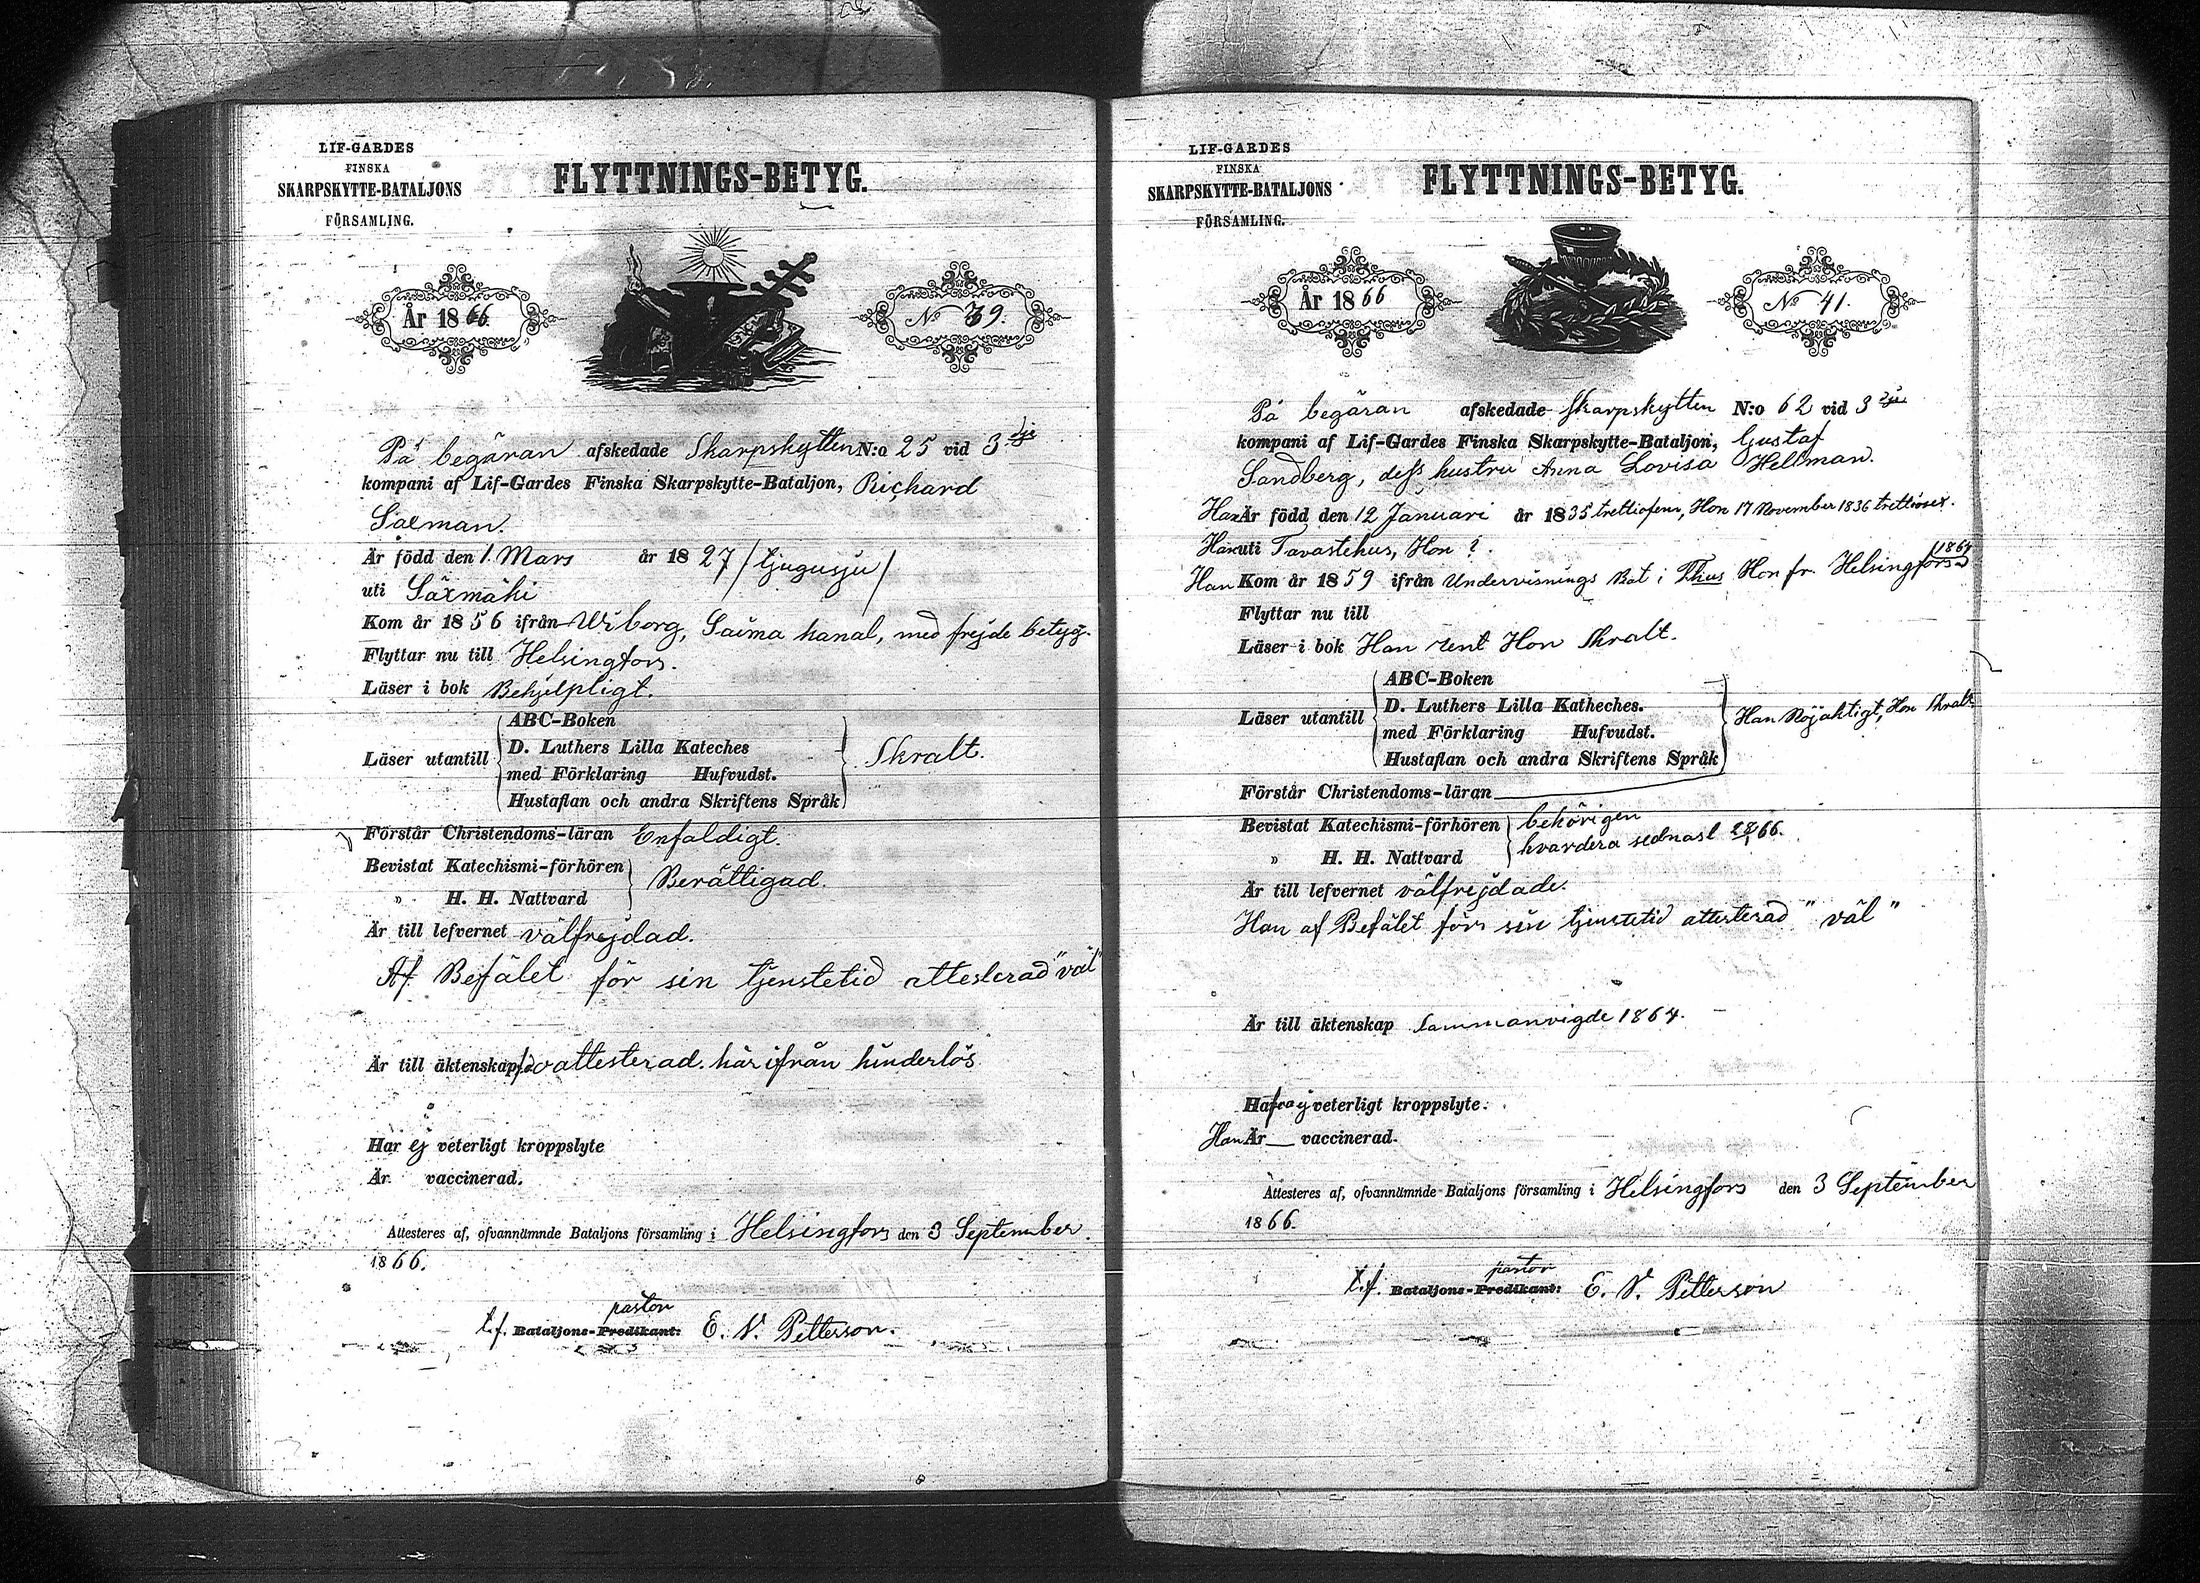 LIF-GARDES
FINSKA
SKARPSKYTTE-BATALJONS
FÖRSAMLING.
FLYTTNINGS-BETYG.
År 1866.
No 39.
På begäran afskedade Skarpskytten N:o 25 vid 3dje
kompani af Lif-Gardes Finska Skarpskytte-Bataljon, Richard
Salman.
Är född den 1. Mars år 1827 /tjugusju/
uti Säxmäki
Kom år 1856 ifrån Wiborg, Saima kanal, med frejde betyg.
Flyttar nu till Helsingfors.
Läser i bok Behjelpligt.
Läser utantill
ABC-Boken
D. Luthers Lilla Kateches
med Förklaring Hufvudst.
Hustaflan och andra Skriftens Språk
Skralt.
Förstår Christendoms-läran Enfaldigt.
Bevistat Katechismi-förhören
" H. H. Nattvard
Berättigad.
Är till lefvernet välfrejdad.
Af Befälet för sin tjenstetid attesterad "väl"
Är till äktenskap attesterad härifrån hinderlös
Har ej veterligt kroppslyte
Är vaccinerad.
Attesteres af, ofvannämnde Bataljons församling i Helsingfors den 3 September
1866.
pastor
t.f. Bataljons-Predikant: E. V. Petterson.
LIF-GARDES
FINSKA
SKARPSKYTTE-BATALJONS
FÖRSAMLING.
FLYTTNINGS-BETYG.
År 1866
No 41.
På begäran afskedade Skarpskytten N:o 62 vid 3dje
kompani af Lif-Gardes Finska Skarpskytte-Bataljon, Gustaf
Sandberg, dess hustru Anna Lovisa Hellman.
Han Är född den 12 Januari år 1835 trettiofem, Hon 17 November 1836 trettiosex.
Han uti Tavastehus, Hon ?.
Han Kom år 1859 ifrån Undervisnings Bat i Thus Hon fr. Helsingfors 1864
Flyttar nu till
Läser i bok Han rent Hon Skralt.
Läser utantill
ABC-Boken
D. Luthers Lilla Katheches.
med Förklaring Hufvudst.
Hustaflan och andra Skriftens Språk
Han Nöjaktigt, Hon Skralt
Förstår Christendoms-läran
Bevistat Katechismi-förhören
" H. H. Nattvard
behörigen
hvardera sednast 66.
Är till lefvernet välfrejdade.
Han af Befälet för sin tjenstetid attesterad "väl"
Är till äktenskap Sammanvigde 1864.
Ha ej veterligt kroppslyte.
Han Är vaccinerad.
Attesteres af, ofvannämnde Bataljons församling i Helsingfors den 3 September
1866.
pastor
t.f. Bataljons-Predikant: E. V. Petterson